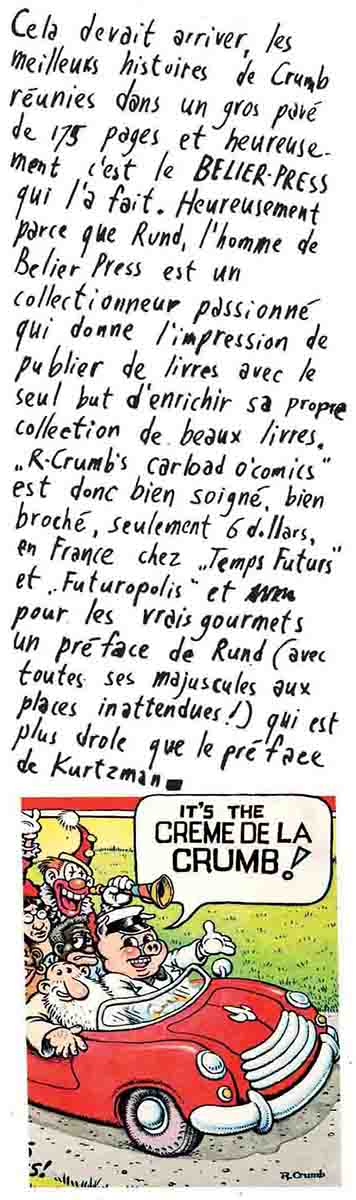 Cela devait arriver, les
meilleurs histoires de Crumb
réunies dans un gros pavé
de 175 pages et heureuse-
ment c'est le BELIER-PRESS
qui l'a fait. Heureusement
parce que Rund, l'homme de
Belier Press est un
collectionneur passionné
qui donne l'impression de
publier de livres avec le
seul but d'enrichir sa propre
collection de beaux livres.
„R-Crumb's carload o'comics"
est donc bien soigné, bien
broché, seulement 6 dollars,
en France chez „Temps Futurs"
et „Futuropolis" et
pour les vrais gourmets
un préface de Rund (avec
toutes ses majuscules aux
places inattendues!) qui est
plus drole que le préface
de Kurtzman
IT'S THE
CREME DE LA
CRUMB!
S!
R. Crumb